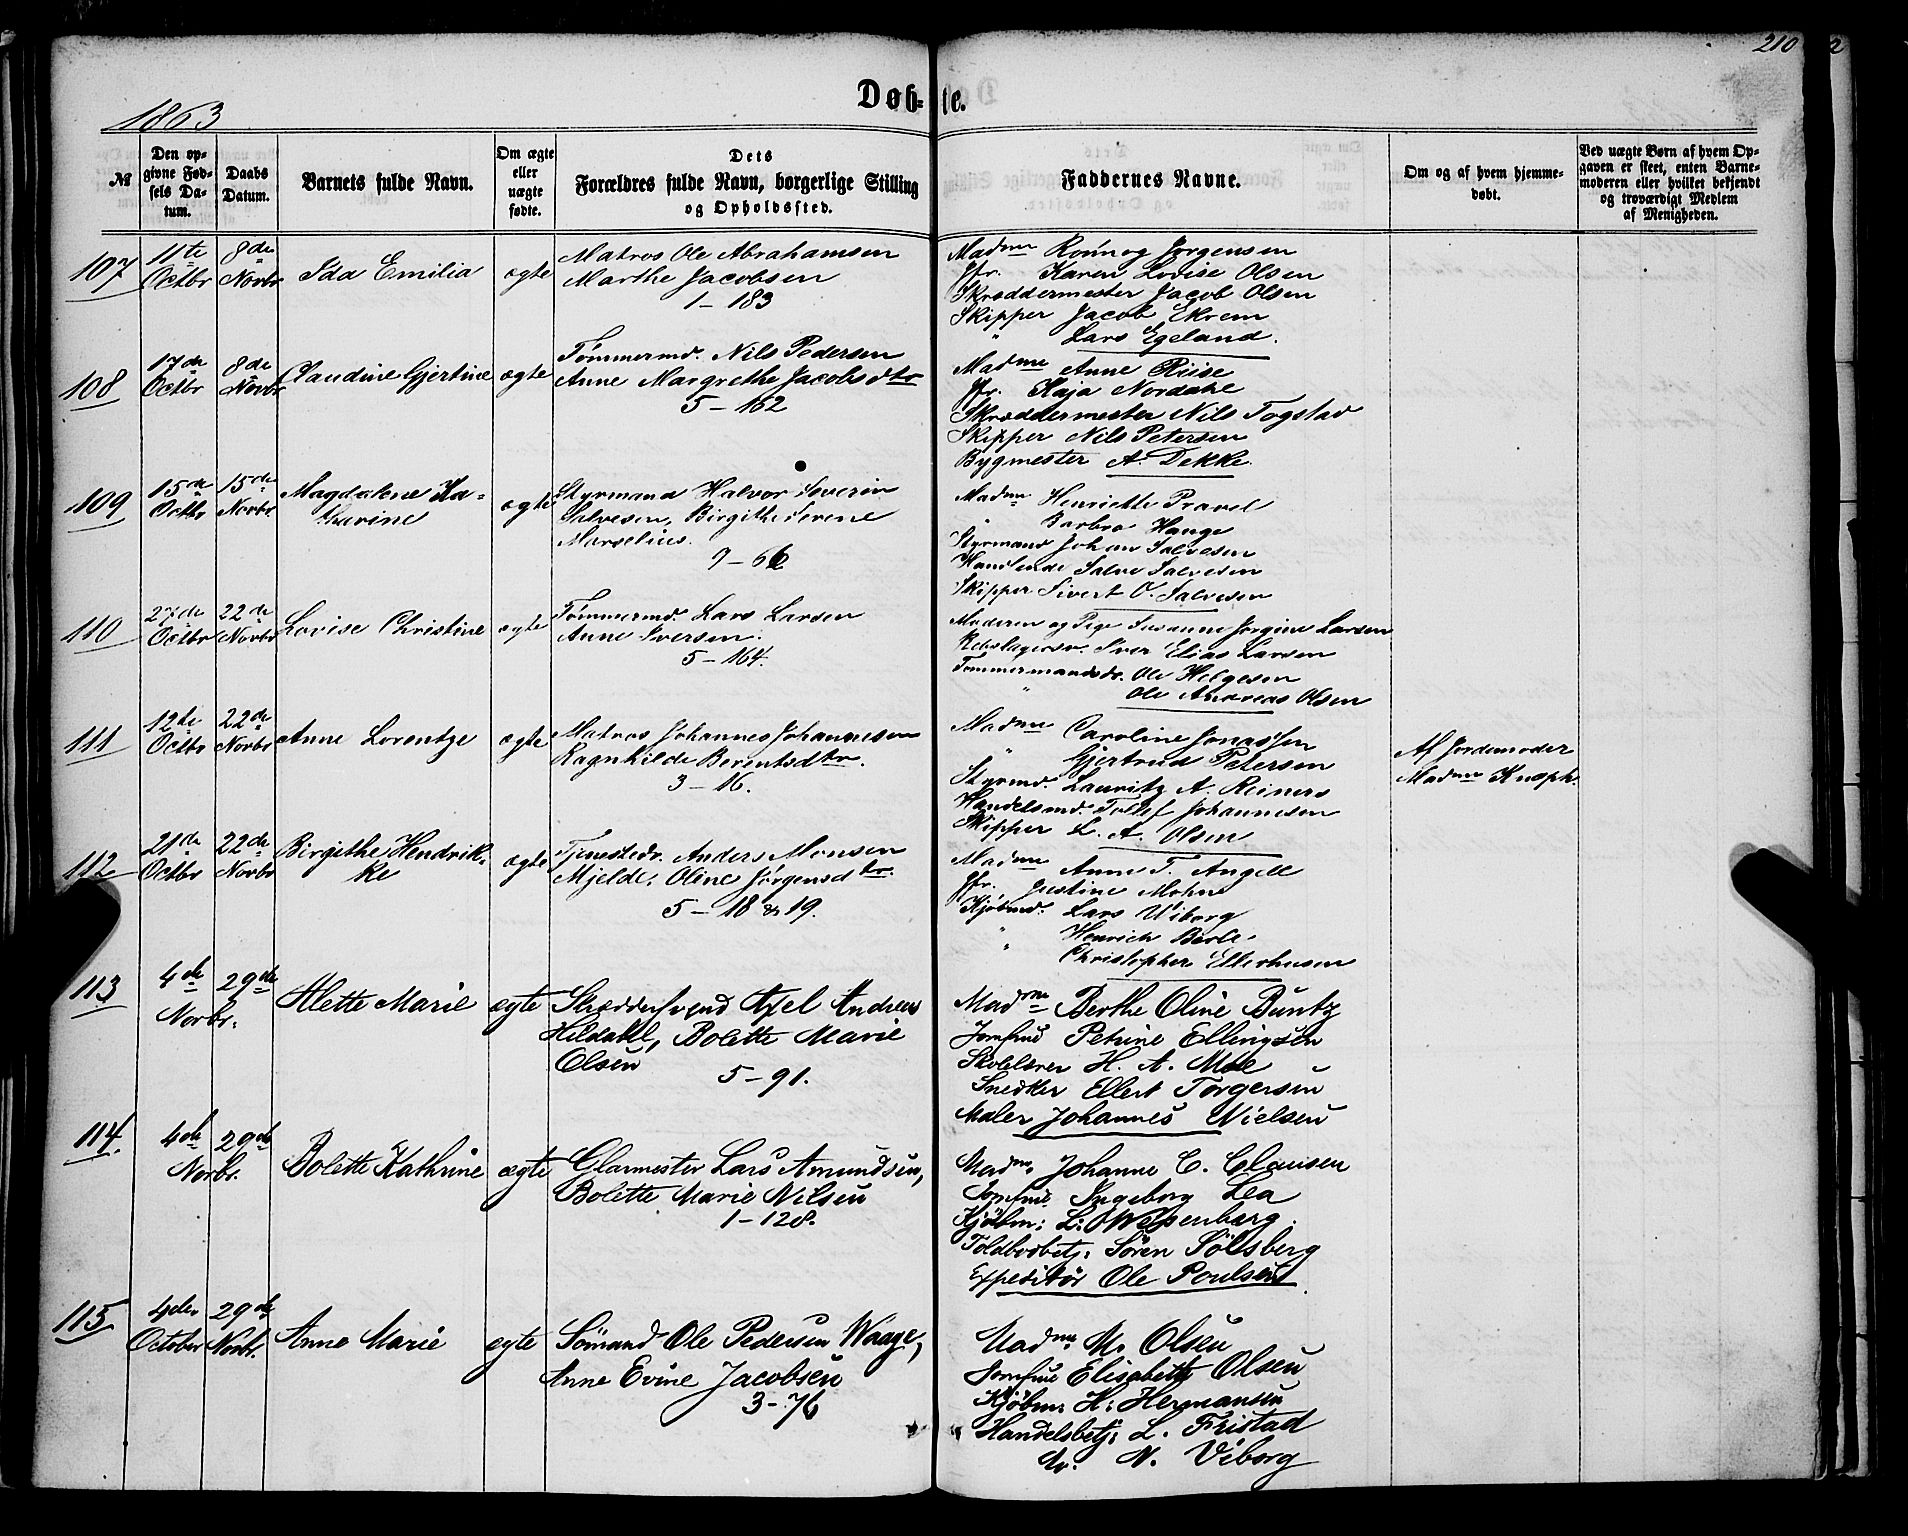 210
1863
Døb-te.
№
Den opgivne Fødsels Datum.
Daabs Datum.
Barnets fulde Navn.
Om ægte eller uægte fødte.
Dets Forældres fulde Navn, borgerlige Stilling og Opholdssted.
Faddernes Navne.
Om og af hvem hjemmedøbt.
Ved uægte Børn af hvem Opgaven er skeet, enten Barnemoderen eller hvilket bekjendt og troværdigt Medlem af Menigheden.
107 11te Octbr 8de Novbr Ida Emilia ægte
Matros Ole Abrahamsen
Marthe Jacobsen
1-183
Madme Rønnog Jørgensen
Jfr. Karen Lovise Olsen
Skræddermester Jacob Olsen
Skipper Jacob Ekrem
" Lars Egeland.
108 17de Octbr 8de Novbr Claudine Gjertine ægte
Tømmermd. Nils Pedersen
Anne Margrethe Jacobsdtr
5-162
Madme Anne Riise
Jfr. Kaja Nordahl
Skræddermester Nils Togstad
Skipper Nils Petersen
Bygmester A. Dekke.
109 15de Octbr 15de Novbr Magdalene Katharine ægte
Styrmand Halvor Severin
Salvesen, Birgithe Serene
Marselius.
9-66
Madme Henriette Pravel
" Barbra Hauge
Styrmand Johan Salvesen
Handlende Salve Salvesen
Skipper Sivert O. Salvesen
110 27de Octbr 22de Novbr Lovise Christine ægte
Tømmermd. Lars Larsen
Anne Iversen.
5-164.
Moderen og Pige Susanne Jørgine Larsen
Rebslagersv. Iver Elias Larsen
Tømmermandsdr. Ole Helgesen
" Ole Andreas Olsen
111 12te Octbr 22de Novbr Anne Lorentze ægte
Matros Johannes Johannesen
Ragnhilde Berentsdtr.
3-16.
Madme Caroline Jonassen
" Gjertrud Petersen
Styrmd. Lauritz A. Reiners
Handelsmd. Tollef Johannesen
Skipper L. A. Olsen
Af Jordemoder
Madme Knoph.
112 21de Octbr 22de Novbr Birgithe Hendrikke ægte
Tjenestedr. Anders Monsen
Mjelde, Oline Jørgensdtr.
5-18 & 19.
Madme Anne T. Angell
Jfr. Justine Mohn
Kjøbmd. Lars Wiborg
" Henrich Berle.
" Christopher Ellerhusen
113 4de Novbr. 29de Alette Marie ægte
Skræddersvend Axel Andreas
Hildahl, Bolette Marie
Olsen
5-91.
Madme Berthe Oline Buntz
Jomfrue Petrine Ellingsen
Skolelærer H. A. Moe
Snedker Ellert Torgersen
Maler Johannes Nielsen
114. 4de Novbr. 29de Bolette Kathrine ægte
Glarmester Lars Amundsen,
Bolette Marie Nilsen
1-128.
Madme Johanne C. Clausen
Jomfrue Ingeborg Lea
Kjøbm: L: Wesenberg.
Toldbodbetj: Søren Solsberg
Expeditør Ole Poulsen
115 4de October 29de Novbr. Anne Marie ægte
Sømand Ole Pedersen Waage,
Anne Evine Jacobsen
3-76
Madme. M. Olsen
Jomfrue Elisabeth Olsen
Kjøbm: H: Hermansen
Handelsbetj: L. Fristad
Do. N. Viborg